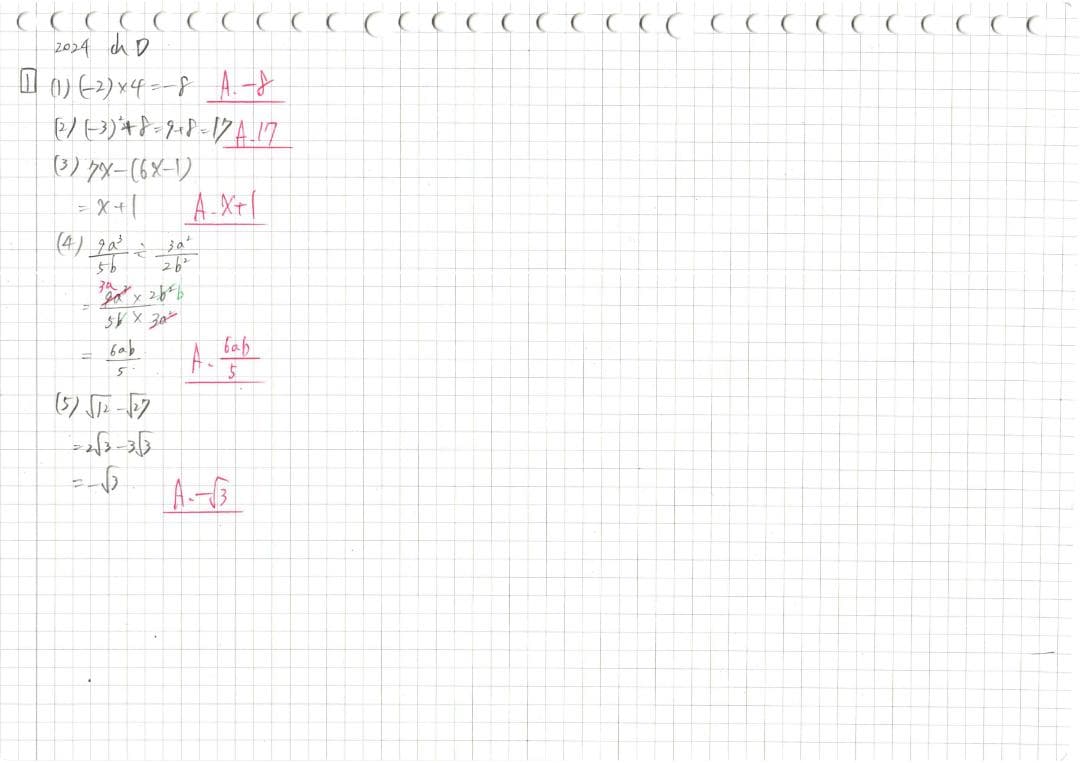 2024 ch D
1 (1) (-2)×4=-8 A.-8
(2) (-3)²+8=9+8=17 A.17
(3) 7x-(6x-1)
=x+1 A.x+1
(4) 9a³/5b ÷ 3a²/2b²
= 3a 9a³×2b² b / 5b×3a²
= 6ab/5 A. 6ab/5
(5) √12-√27
=2√3-3√3
=-√3 A.-√3